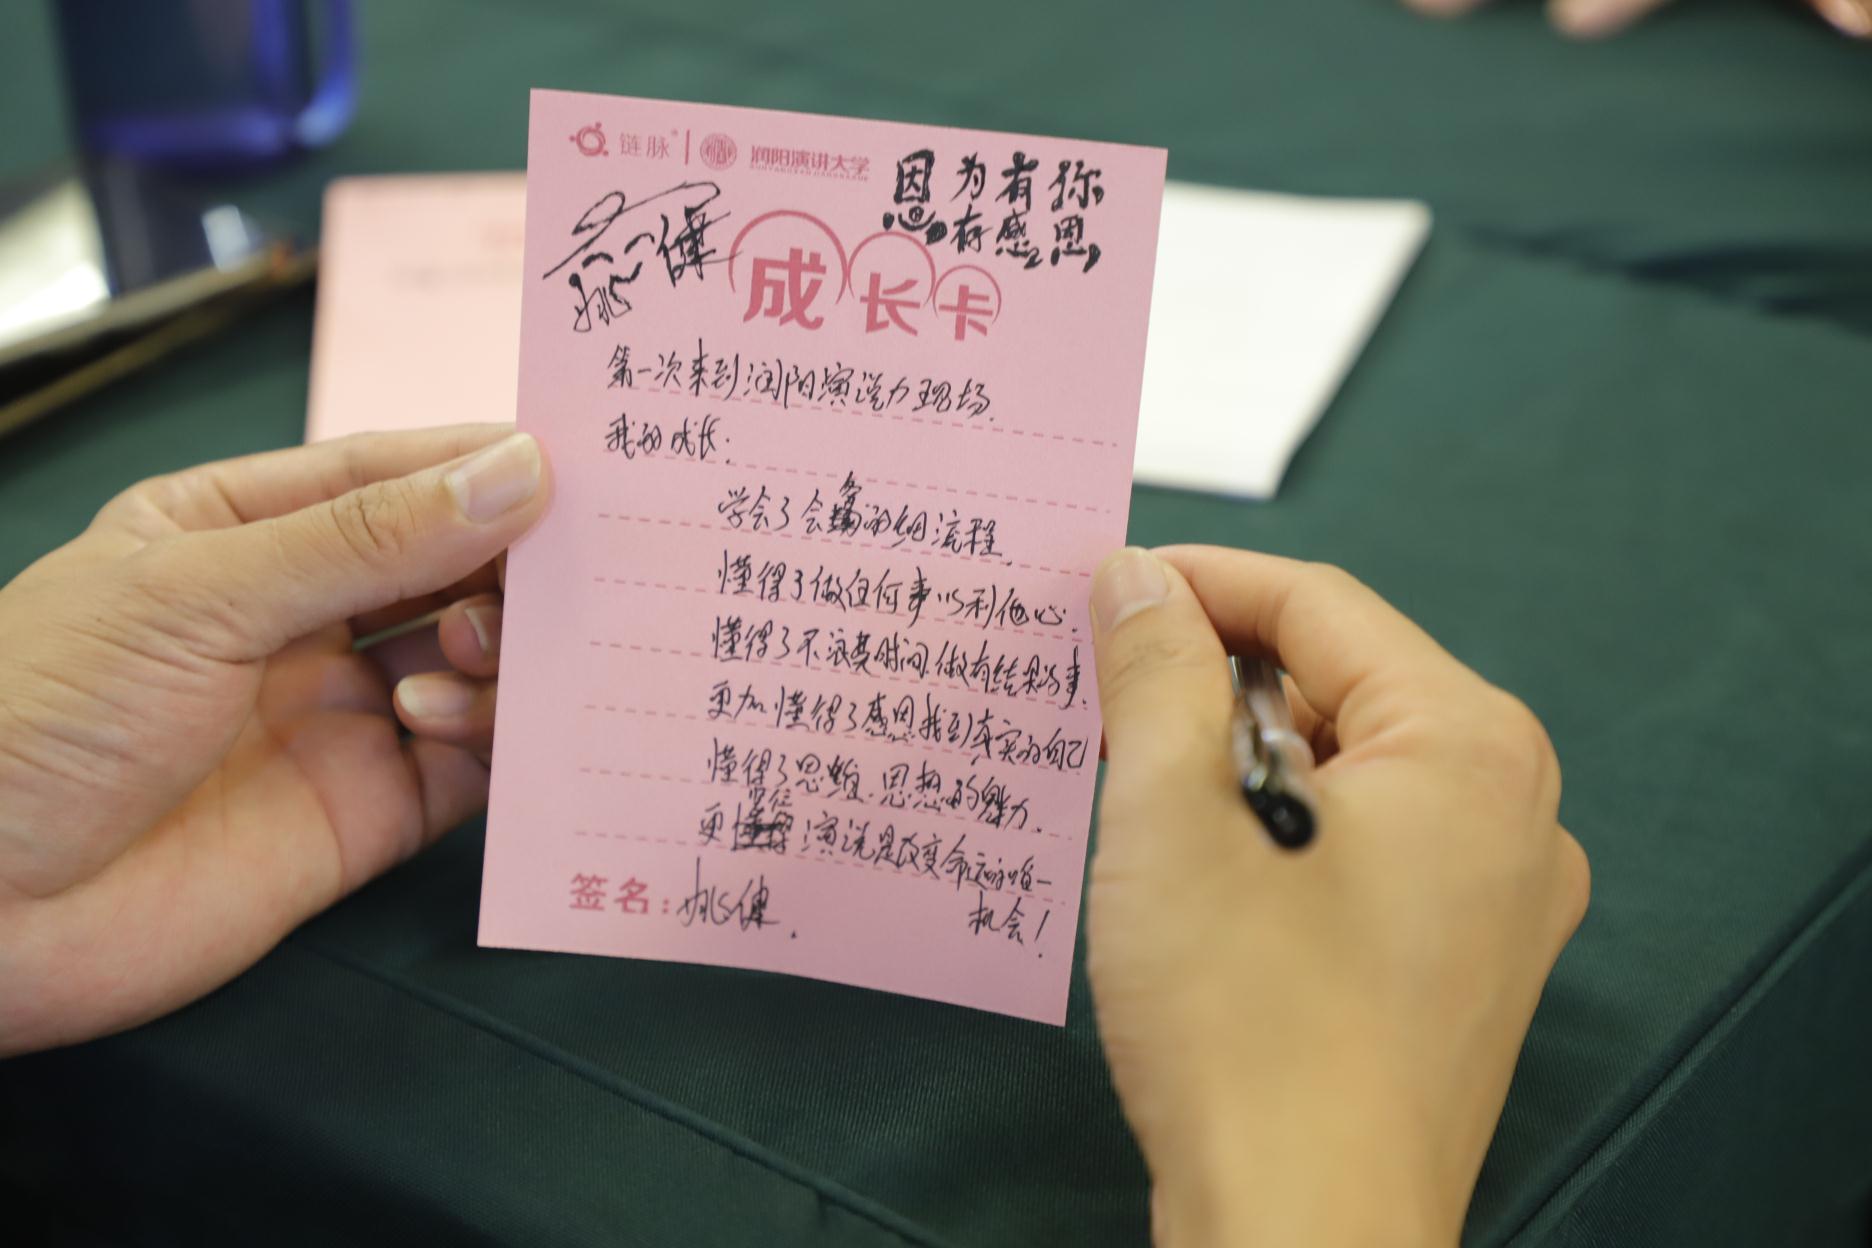 链脉® 润阳演讲大学
RUNYANGYANJIANGDAXUE
因为有你,
恩,存感恩,
姚健
成长卡
第一次来到润阳演说力现场.
我的成长:
学会了会务的细流程.
懂得了做任何事以利他心.
懂得了不浪费时间.做有结果的事.
更加懂得了感恩找到真实的自己
懂得了思维.思想的魅力.
更定位演说是改变命运的唯一
签名:姚健.
机会!